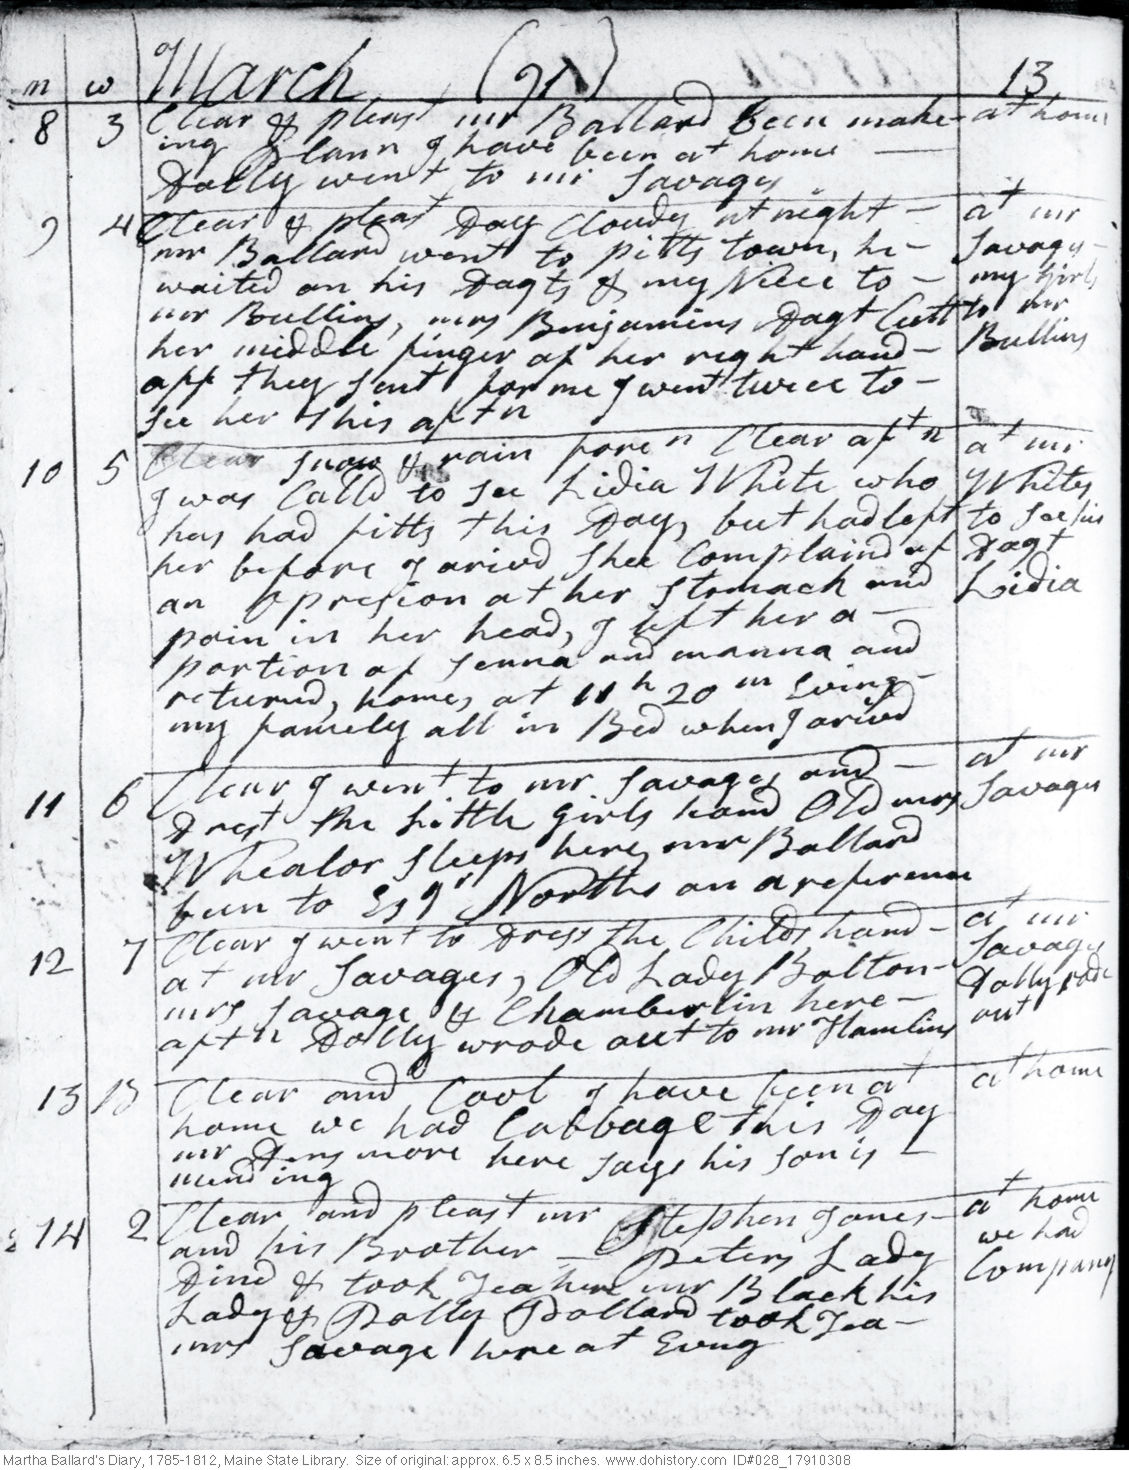 March (91) 13
m w
8 3 Clear & pleast mr Ballard been make- at home
ing plann I have been at home —
Dolly went to mr Savages
9 4 Clear & pleast Day Cloudy at night - at mr
mr Ballard went to pitts town, he - Savages -
waited on his Dagts & my Niece to - my Girls
mr Bullins, mrs Benjamins Dagt Cutt to mr
her middle finger of her right hand - Bullins
off they sent for me I went twice to -
see her this aftn
10 5 Clear snow & rain foren Clear aftn at mr
I was Calld to see Lidia White who Whites
has had fitts this Day, but had left to see his
her before I arivd Shee Complaind of Dagt
an Opresion at her stomach and Lidia
pain in her head, I left her a -
portion of senna and manna and
returnd, home, at 11 h 20 m Eving -
my famely all in Bed when I arivd
11 6 Clear I went to mr Savages and - at mr
Drest the Little Girls hand Old mrs Savages
Whealor sleeps here, mr Ballard
been to Esqr Norths on a reference
12 7 Clear I went to Dress the Childs, hand - at mr
at mr Savages, Old Lady Bolton - Savages
mrs Savage & Chamberlin here - Dolly rode
aftn Dolly wrode out to mr Hamlins out
13 B Clear and Cool I have been at at home
home we had Cabbage this Day
mr Densmore here says his son is -
mending
14 2 Clear and pleast mr Stephen Jones - at home
and his Brother — Peters Lady we had
Dind & took Tea here mr Black his Company
Lady & Polly Pollard took Tea -
mrs Savage here at Evng
Martha Ballard's Diary, 1785-1812, Maine State Library. Size of original: approx. 6.5 x 8.5 inches. www.dohistory.com ID#028_17910308